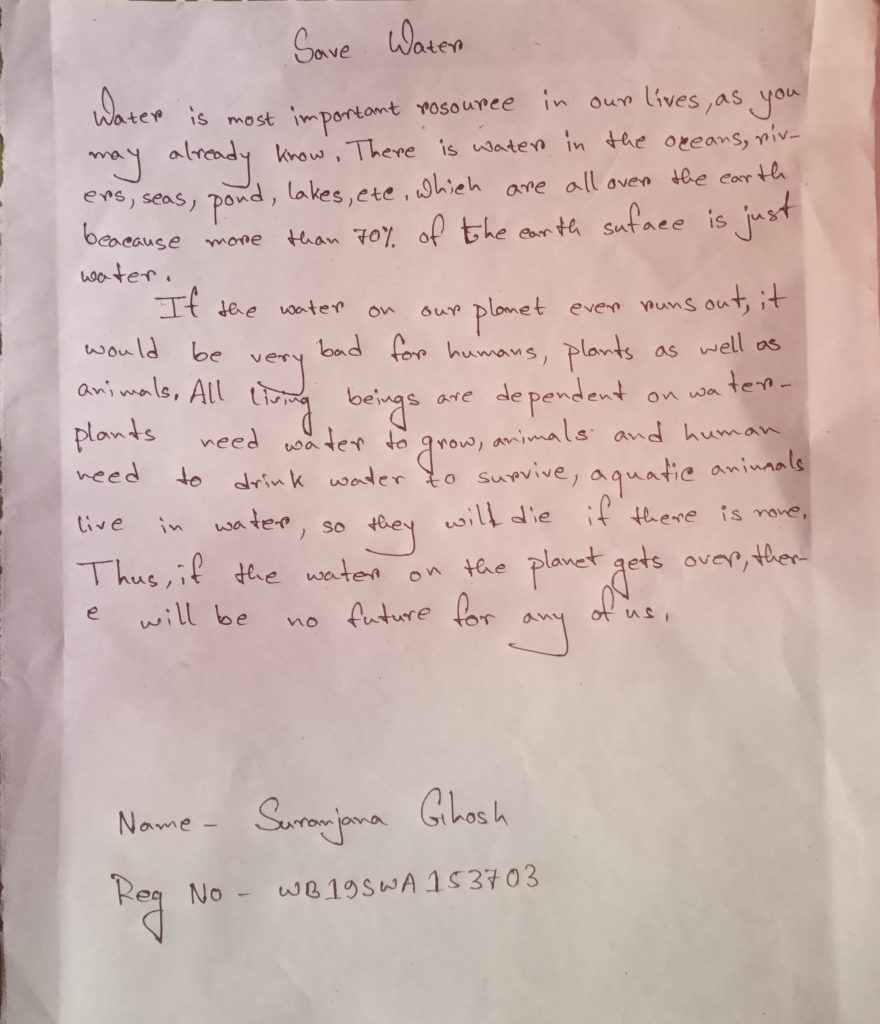 Save Water
Water is most important rosource in our lives, as you
may already know. There is water in the oceans, riv-
ers, seas, pond, lakes, etc. Which are all over the earth
beacause more than 70% of the earth suface is just
water.
If the water on our planet ever runs out, it
would be very bad for humans, plants as well as
animals. All living beings are dependent on water-
plants need water to grow, animals and human
need to drink water to survive, aquatic animals
live in water, so they will die if there is none.
Thus, if the water on the planet gets over, ther-
e will be no future for any of us.
Name - Suranjana Ghosh
Reg No - WB19SWA153703